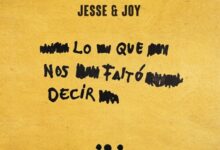 JESSE & JOY
LO QUE
NOS FALTÓ
DECIR